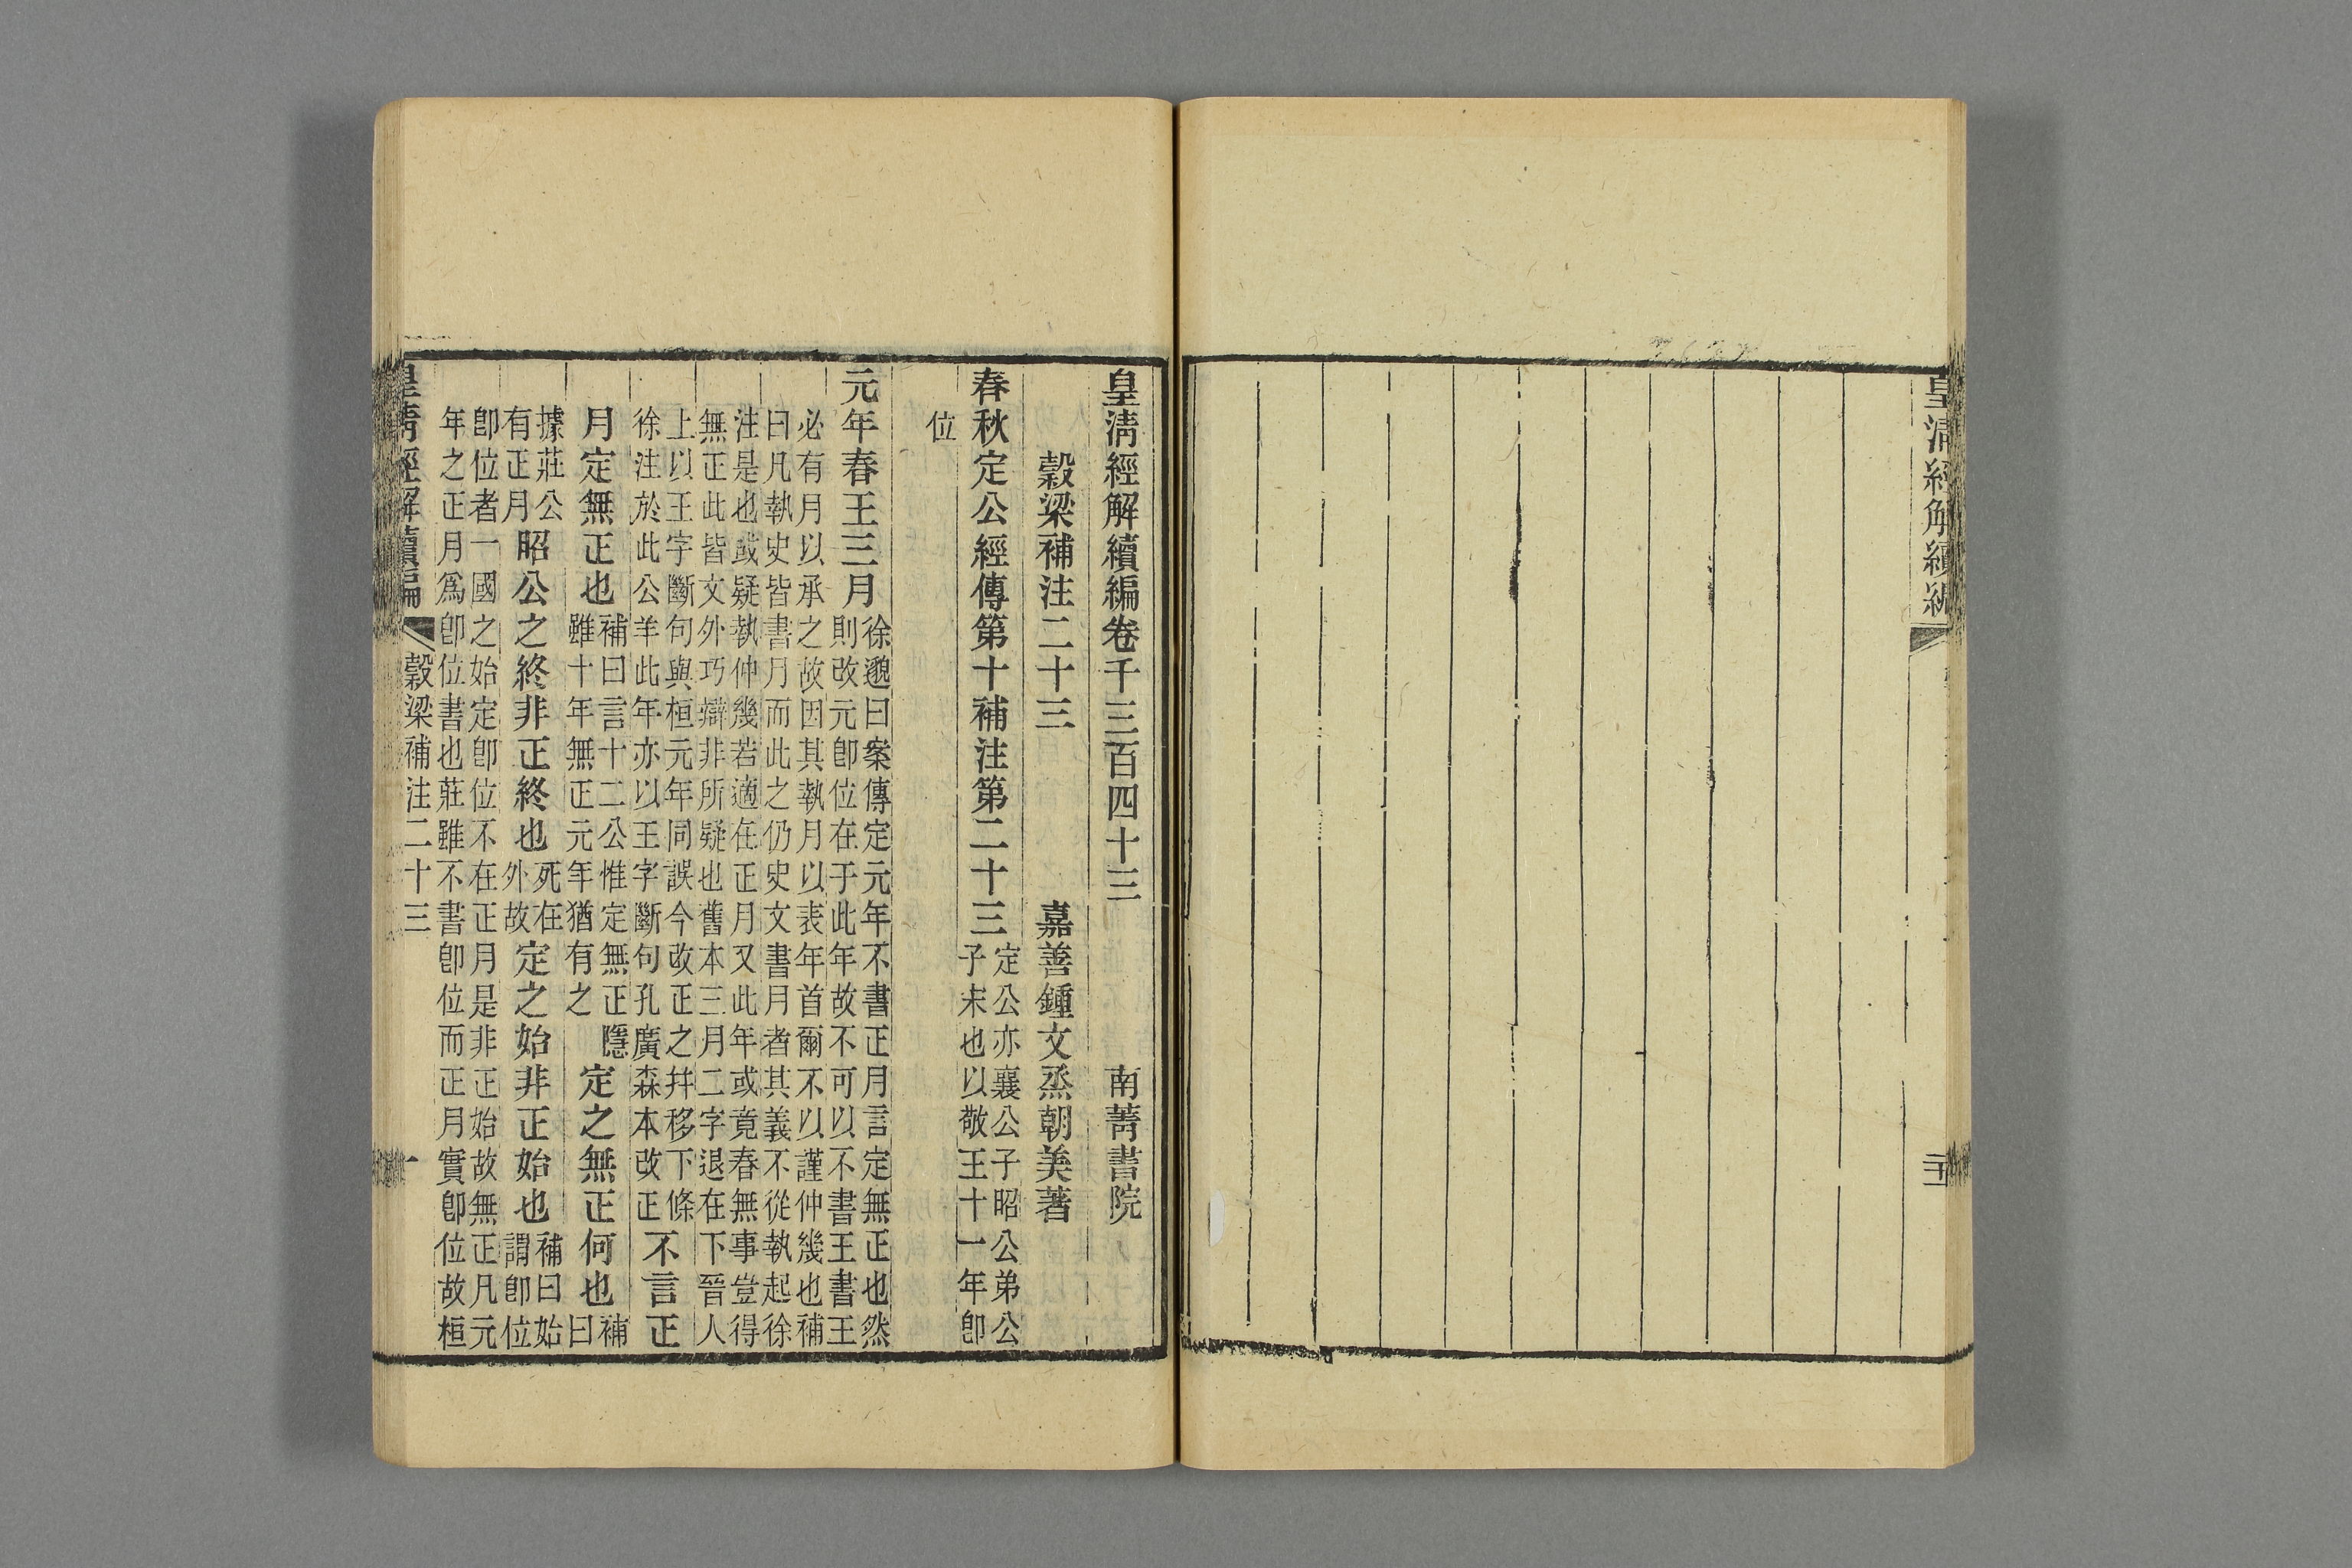 皇清經解續編
二十
皇清經解續編卷千三百四十三 南菁書院
穀梁補注二十三 嘉善鍾文烝朝美著
春秋定公經傳第十補注第二十三
定公亦襄公子昭公弟公
子宋也以敬王十一年卽
位
元年春王三月
徐邈曰案傳定元年不書正月言定無正也然
則改元卽位在于此年故不可以不書王書王
必有月以承之故因其執月以表年首爾不以謹仲幾也補
曰凡執史皆書月而此之仍史文書月者其義不從執起徐
注是也或疑執仲幾若適在正月又此年或竟春無事豈得
無正此皆文外巧辯非所疑也舊本三月二字退在下晉人
上以王字斷句與桓元年同誤今改正之并移下條
徐注於此公羊此年亦以王字斷句孔廣森本改正
不言正
月定無正也
補曰言十二公惟定無正隱
雖十年無正元年猶有之
定之無正何也
補
曰
據莊公
有正月
昭公之終非正終也
死在
外故
定之始非正始也
補曰始
謂卽位
卽位者一國之始定卽位不在正月是非正始故無正凡元
年之正月爲卽位書也莊雖不書卽位而正月實卽位故桓
皇清經解續編 穀梁補注二十三 一